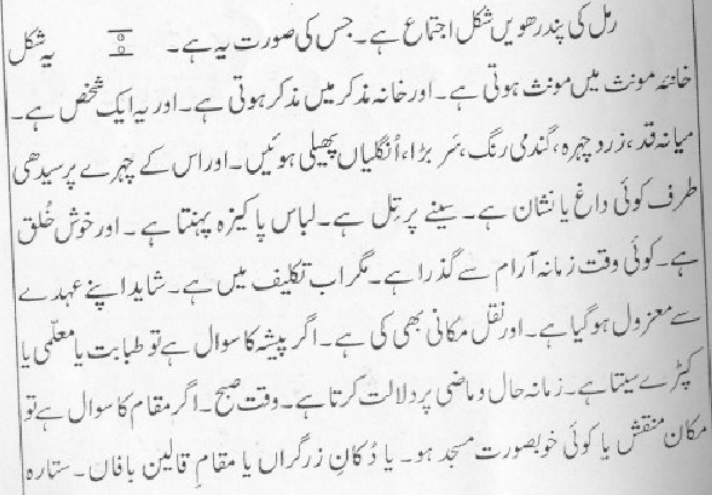 رمل کی پندرھویں شکل اجتماع ہے۔ جس کی صورت یہ ہے۔ یہ شکل
خانہ مونث میں مونث ہوتی ہے۔ اور خانہ مذکر میں مذکر ہوتی ہے۔ اور یہ ایک شخص ہے۔
میانہ قد، زرد چہرہ، گندمی رنگ، سَر بڑا، اُنگلیاں پھیلی ہوئیں۔ اور اس کے چہرے پر سیدھی
طرف کوئی داغ یا نشان ہے۔ سینے پر تِل ہے۔ لباس پاکیزہ پہنتا ہے۔ اور خوش خُلق
ہے۔ کوئی وقت زمانہ آرام سے گذرا ہے۔ مگر اب تکلیف میں ہے۔ شاید اپنے عہدے
سے معزول ہو گیا ہے۔ اور نقل مکانی بھی کی ہے۔ اگر پیشہ کا سوال ہے تو طبابت یا معلّمی یا
کپڑے سیتا ہے۔ زمانہ حال و ماضی پر دلالت کرتا ہے۔ وقت صبح۔ اگر مقام کا سوال ہے تو
مکان منقش یا کوئی خوبصورت مسجد ہو۔ یا دُکانِ زرگراں یا مقامِ قالین بافاں۔ ستارہ